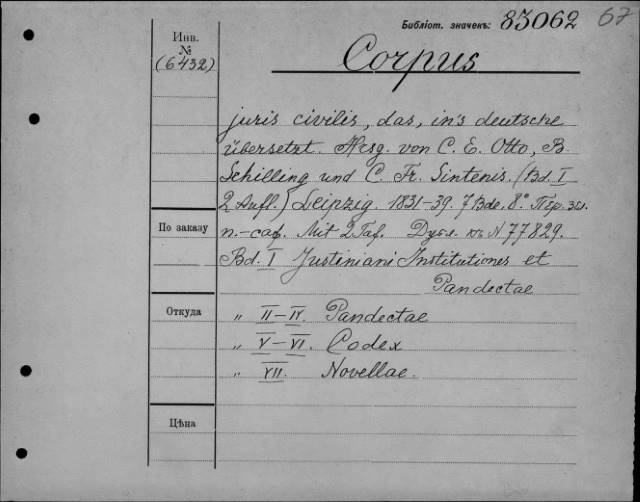 Библіот. значекъ: 83062 67
Инв.
№
(6432)
Corpus
juris civilis, das, in's deutsche
übersetzt. Hrsg. von C. E. Otto, B.
Schilling und C. Fr. Sintenis. (Bd. I
2 Aufl.) Leipzig. 1831-39. 7 Bde. 8°. Пер.
п.-саф. Mit 2 Taf. Дубл. къ N 77829.
По заказу
Bd. I Justiniani Institutiones et
Pandectae
Откуда
„ II-IV. Pandectae
„ V-VI. Codex
„ VII. Novellae.
Цѣна